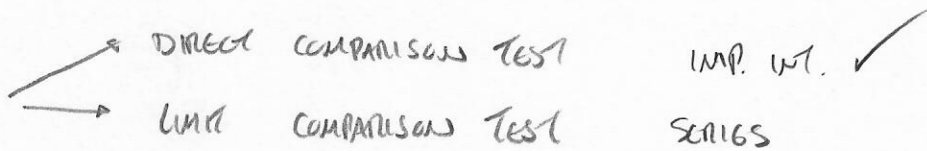 DIRECT COMPARISON TEST IMP. INT. ✓
LIMIT COMPARISON TEST SERIES